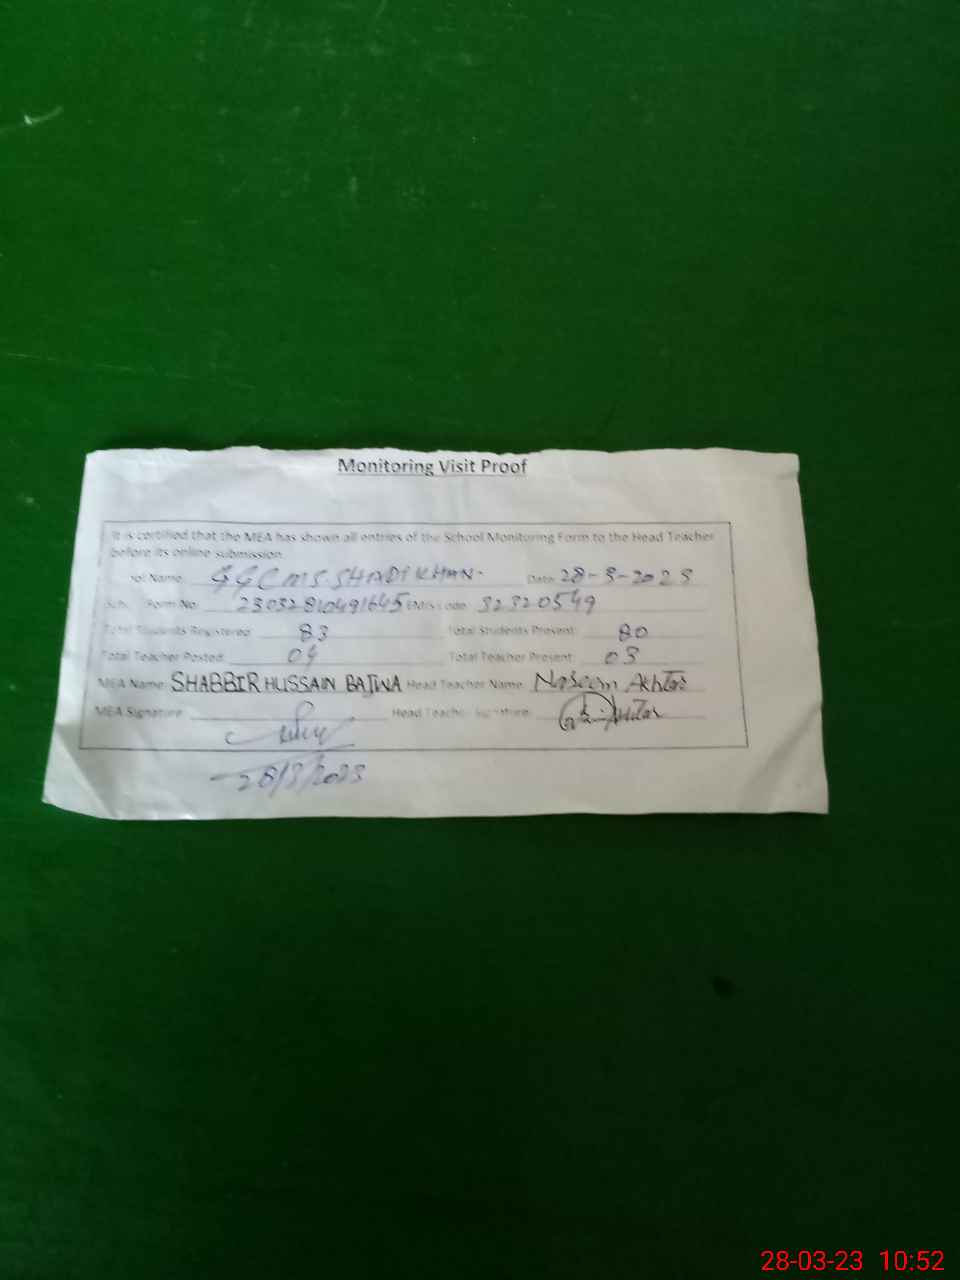 Monitoring Visit Proof
It is certified that the MEA has shown all entries of the School Monitoring Form to the Head Teacher
before its online submission
ool Name GGCMS SHADI KHAN- Date 28-3-2023
Sch Form No. 23032810491645 EMIS Code 32320549
Total Students Registered 83 Total Students Present: 80
Total Teacher Posted: 04 Total Teacher Present: 03
MEA Name: SHABBIR HUSSAIN BAJWA Head Teacher Name: Naseem Akhtar
MEA Signature: Head Teacher Signature: Akhtar
28/3/2023
28-03-23 10:52